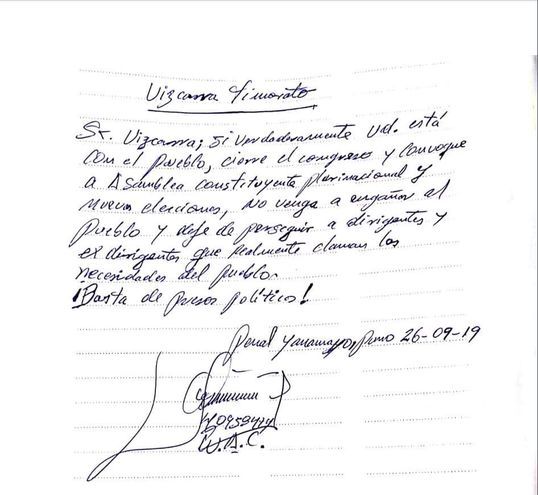 Vizcarra Timorato
Sr. Vizcarra; Si verdaderamente Ud. está
con el pueblo, cierre el congreso y convoque
a Asamblea constituyente plurinacional y
nuevas elecciones, no venga a engañar al
pueblo y deje de perseguir a dirigentes y
ex dirigentes que realmente claman las
necesidades del pueblo.
¡Basta de presos políticos!
Penal Yanamayo, Puno 26-09-19
W.A.C.